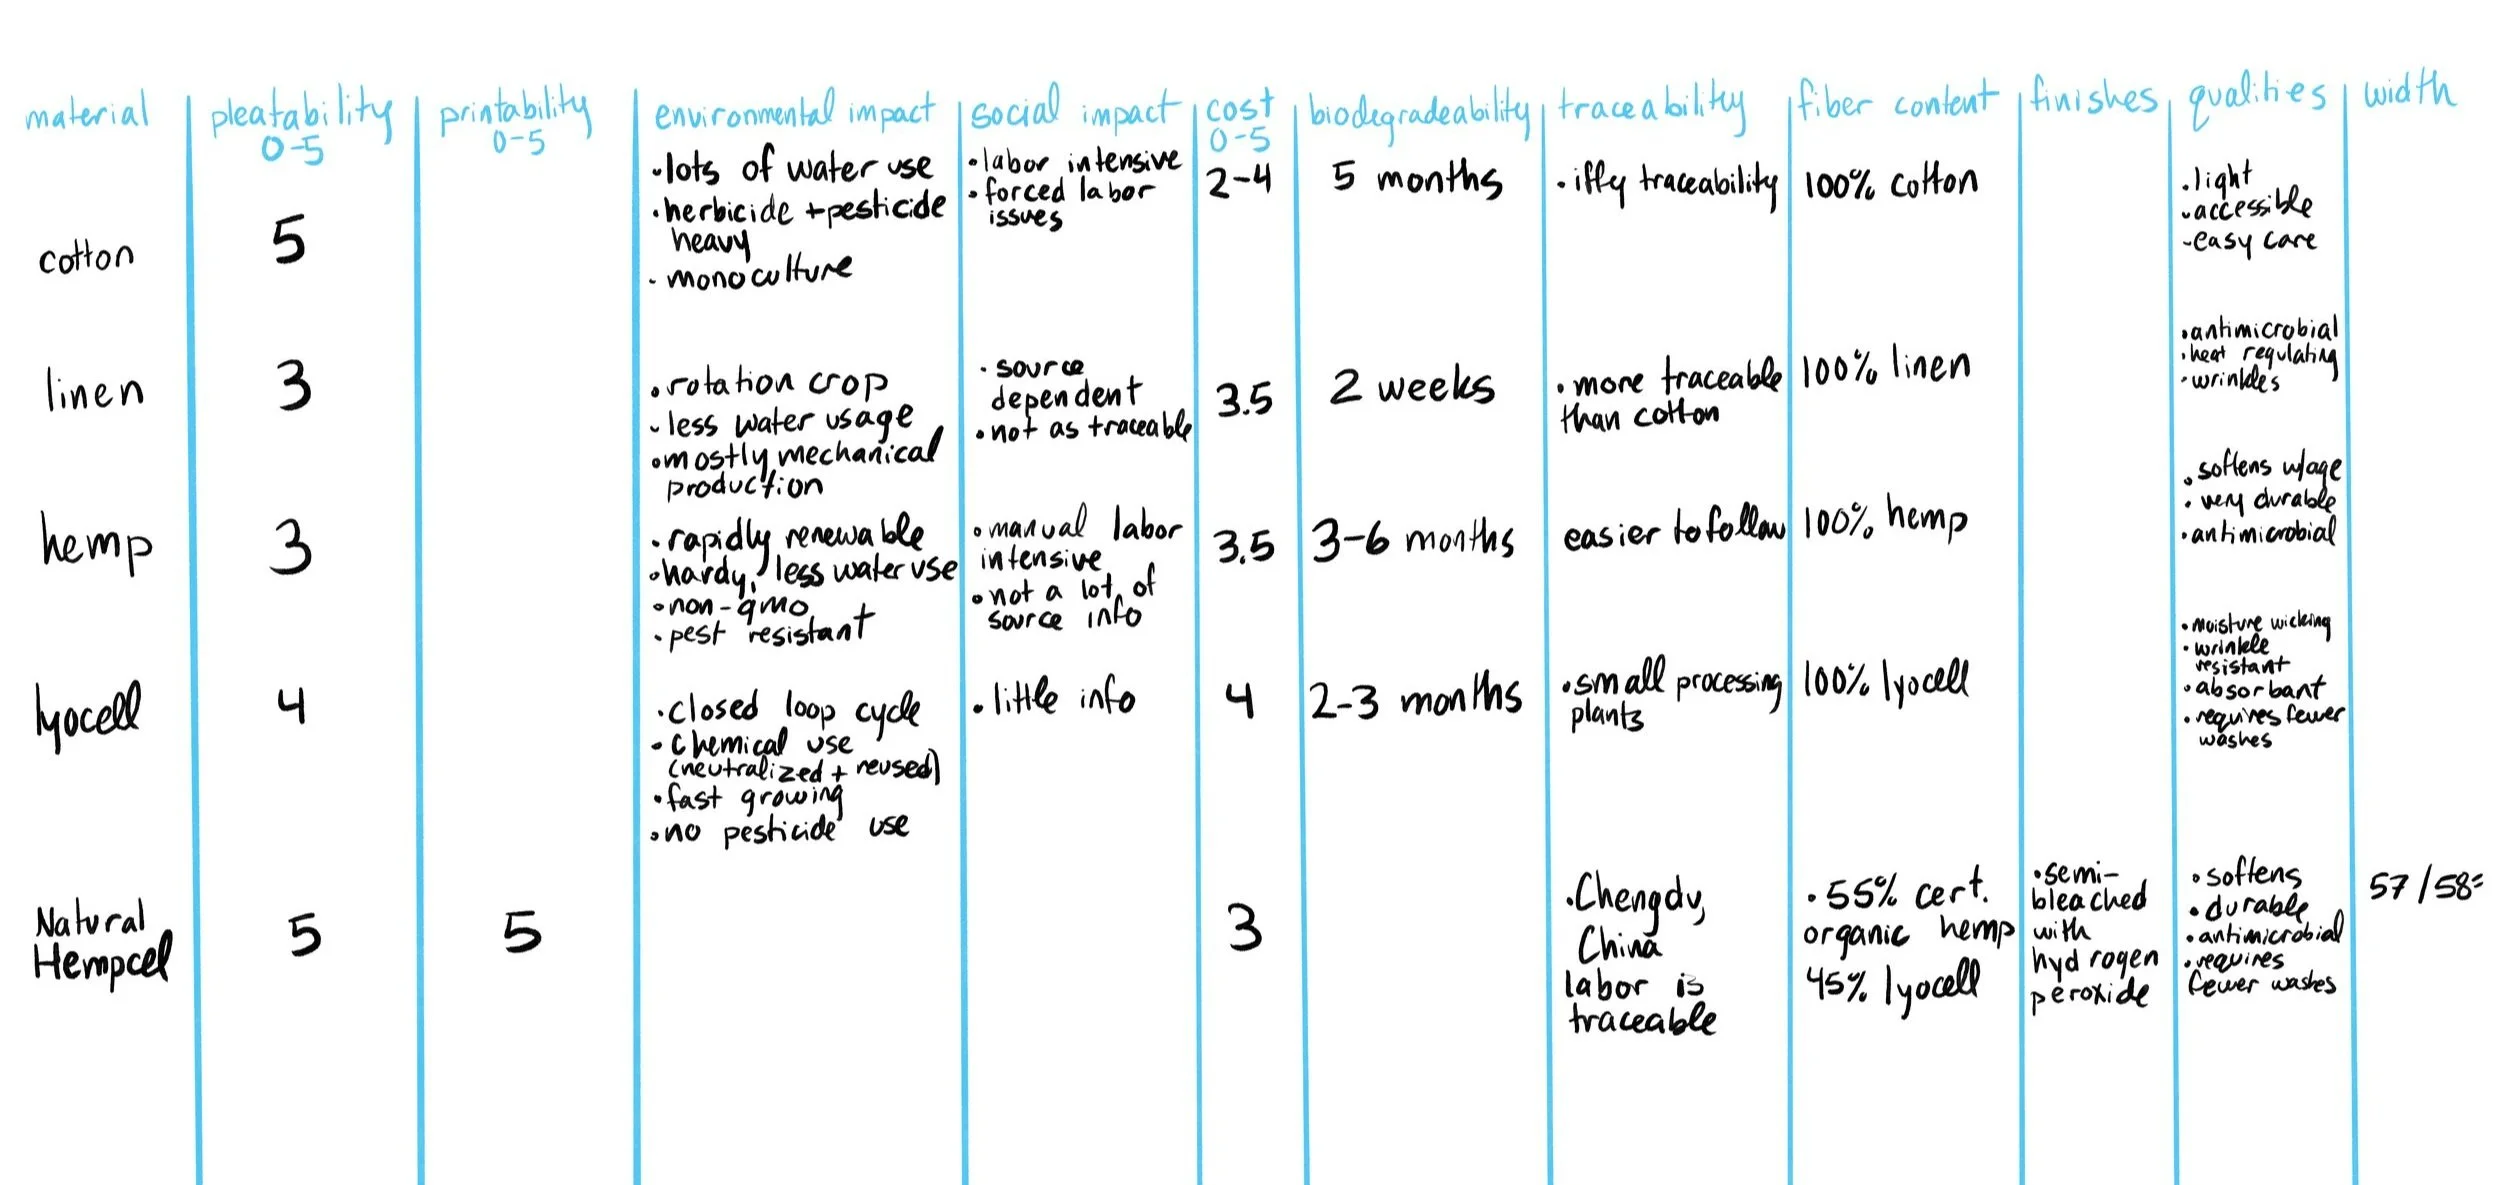 material
pleatability
0-5
printability
0-5
environmental impact
social impact
cost
0-5
biodegradeability
traceability
fiber content
finishes
qualities
width
cotton
5
•lots of water use
•herbicide + pesticide
heavy
•monoculture
•labor intensive
•forced labor
issues
2-4
5 months
•iffy traceability
100% cotton
•light
•accessible
-easy care
linen
3
•rotation crop
•less water usage
•mostly mechanical
production
•source
dependent
•not as traceable
3.5
2 weeks
•more traceable
than cotton
100% linen
•antimicrobial
•heat regulating
•wrinkles
hemp
3
•rapidly renewable
•hardy, less water use
•non-gmo
•pest resistant
•manual labor
intensive
•not a lot of
source info
3.5
3-6 months
easier to follow
100% hemp
•softens w/age
•very durable
•antimicrobial
lyocell
4
•closed loop cycle
•chemical use
(neutralized + reused)
•fast growing
•no pesticide use
•little info
4
2-3 months
•small processing
plants
100% lyocell
•moisture wicking
•wrinkle
resistant
•absorbant
•requires fewer
washes
Natural
Hempcel
5
5
3
•Chengdu,
China
labor is
traceable
•55% cert.
organic hemp
45% lyocell
•semi-
bleached
with
hydrogen
peroxide
•softens
•durable
•antimicrobial
•requires
fewer washes
57/58"